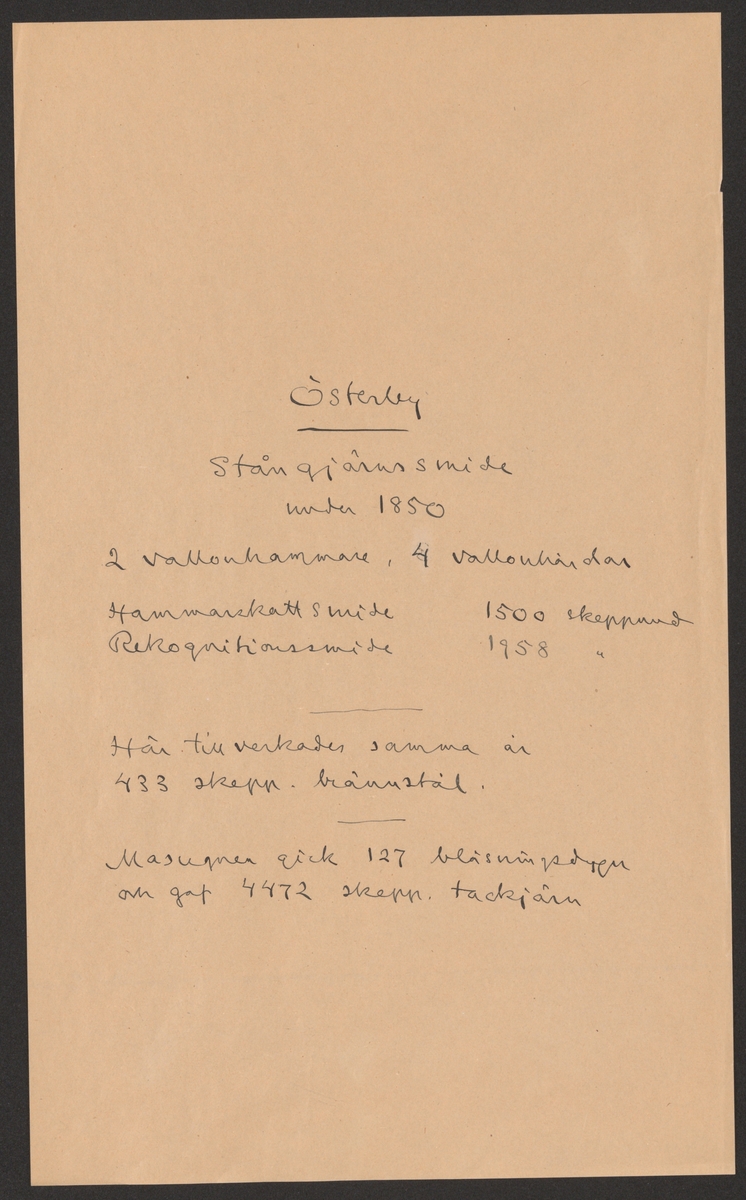 Österby
Stångjärnssmide
under 1850
2 vallonhammare, 4 vallonhärdar
Hammarskattsmide 1500 skeppund
Rekognitionssmide 1958 "
Här tillverkades samma år
433 skepp. brännstål.
Masugnen gick 127 blåsningsdygn
och gaf 4472 skepp. tackjärn